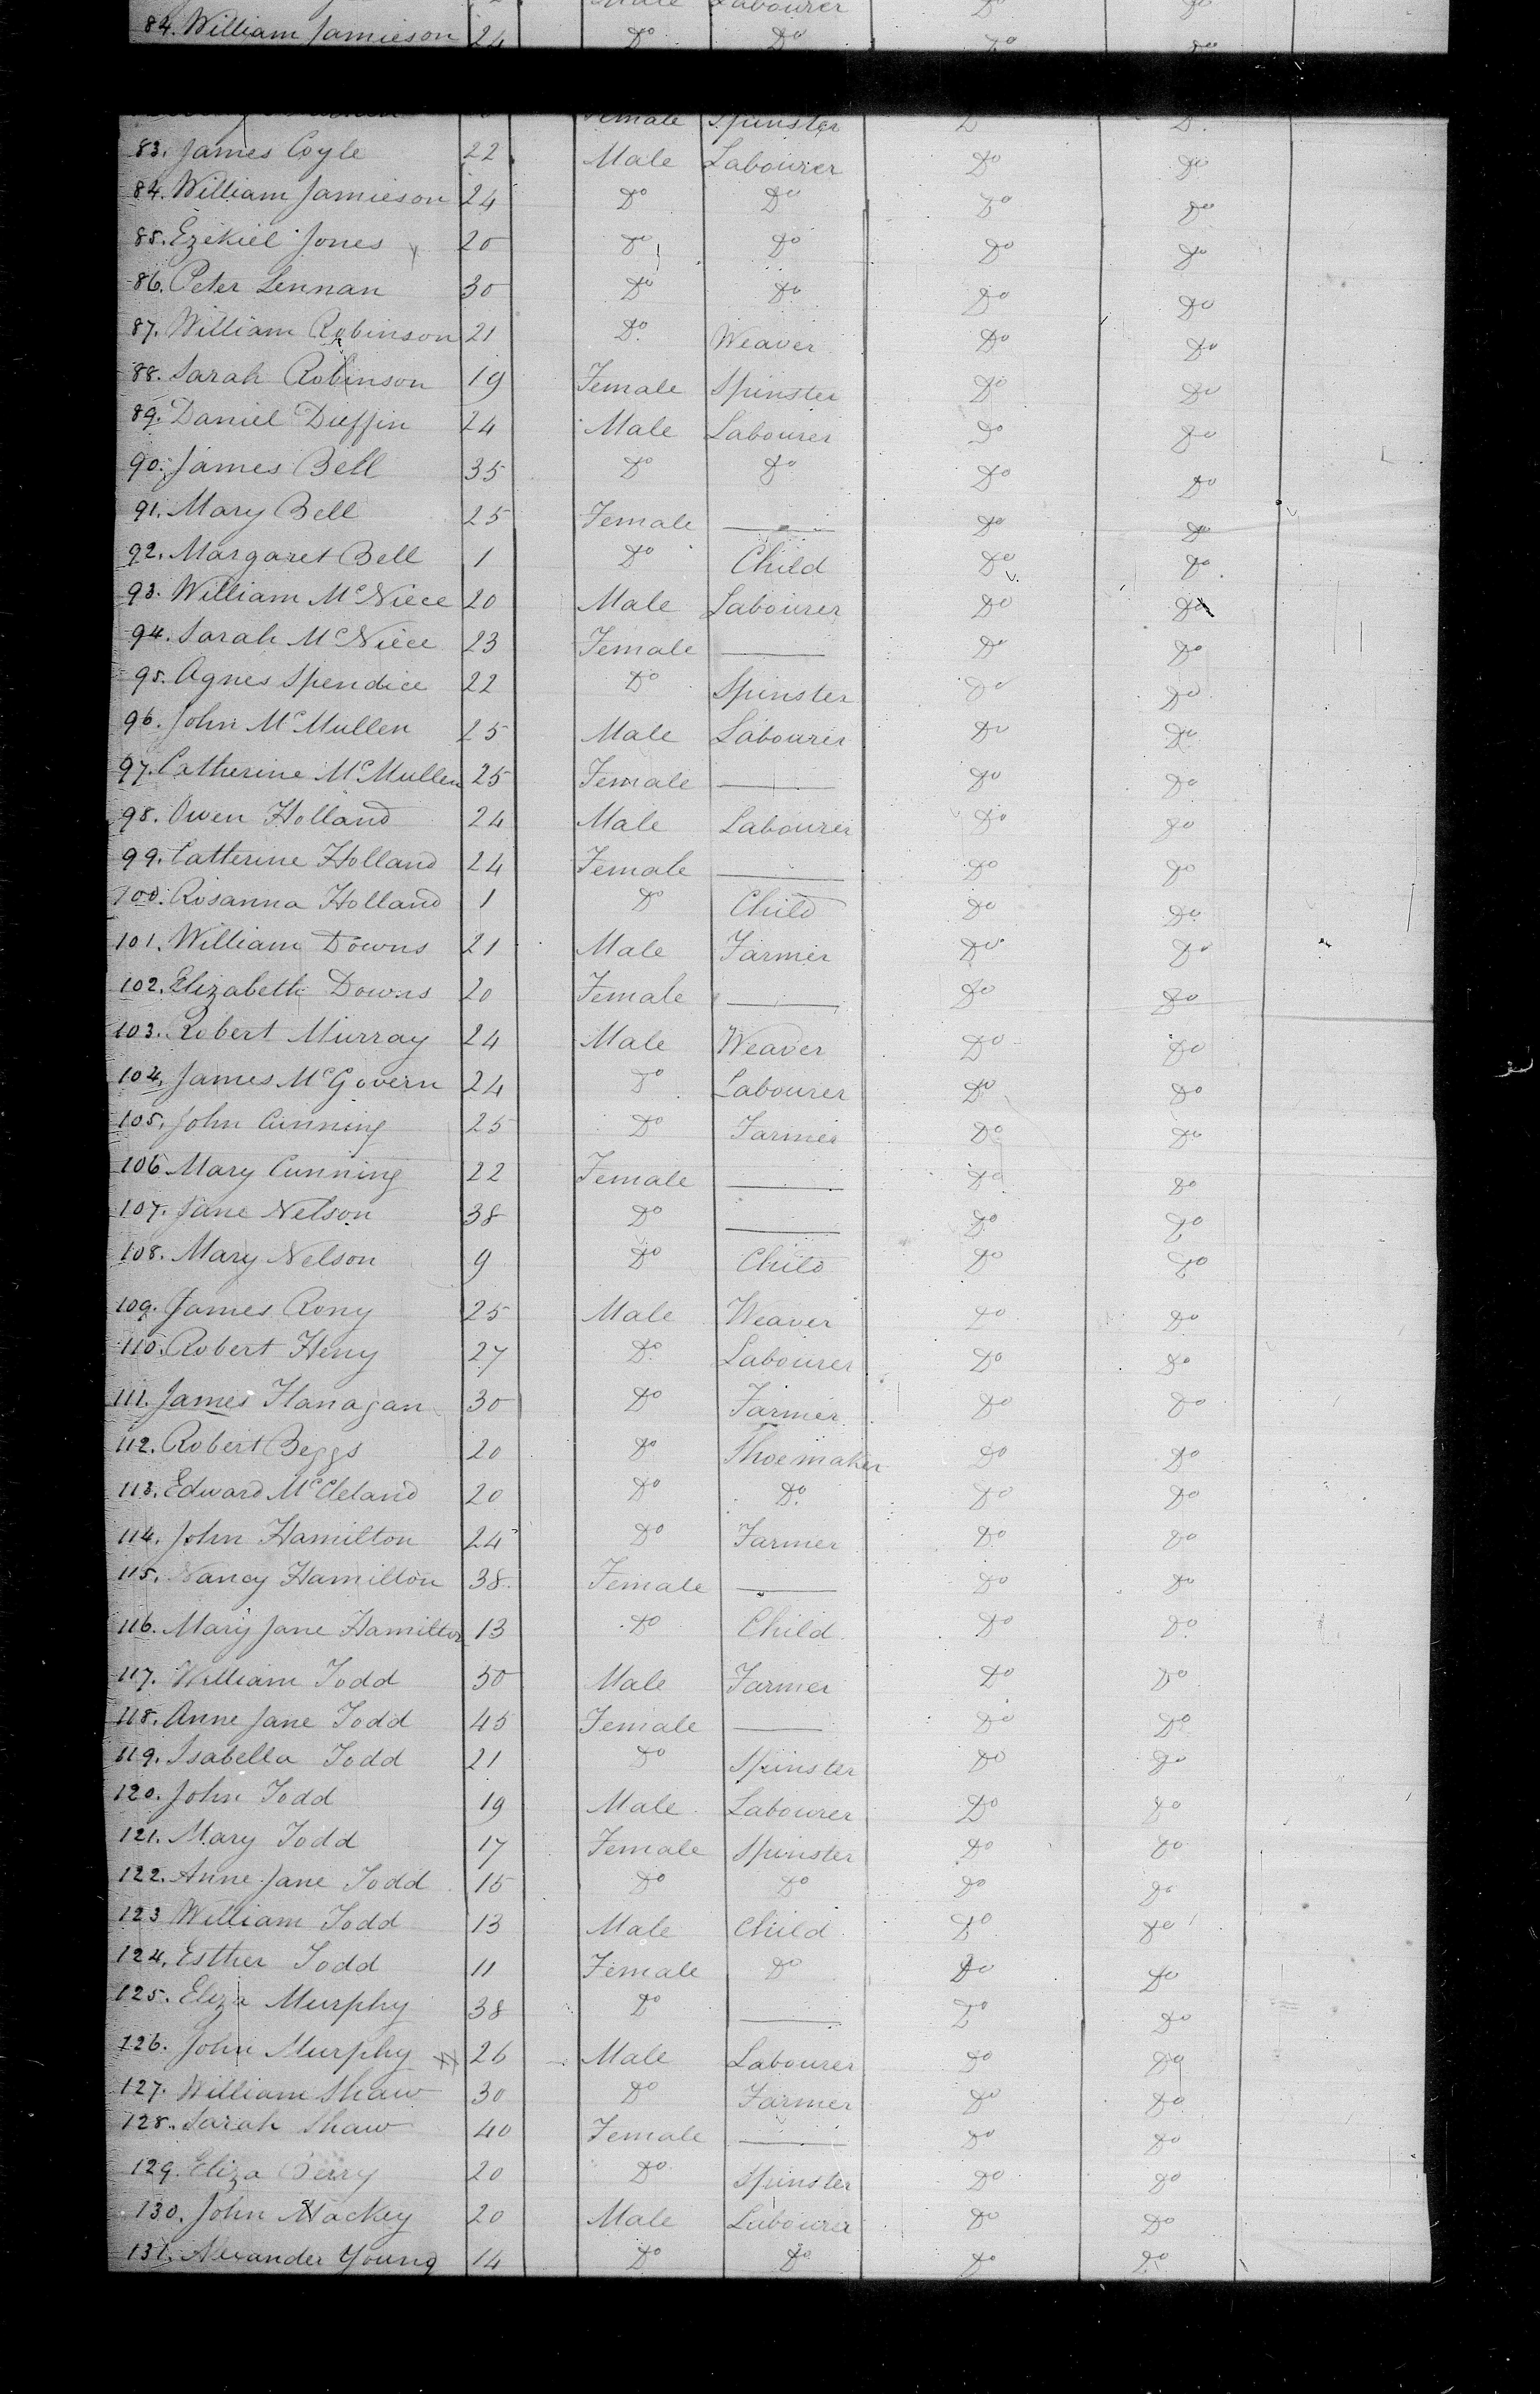 Male Labourer Do Do
84. William Jamieson 24 Do Do Do Do
Female Spinster Do Do
83. James Coyle 22 Male Labourer Do Do
84. William Jamieson 24 Do Do Do Do
85. Ezekiel Jones 20 Do Do Do Do
86. Peter Lennan 30 Do Do Do Do
87. William Robinson 21 Do Weaver Do Do
88. Sarah Robinson 19 Female Spinster Do Do
89. Daniel Duffin 24 Male Labourer Do Do
90. James Bell 35 Do Do Do Do
91. Mary Bell 25 Female — Do Do
92. Margaret Bell 1 Do Child Do Do
93. William McNiece 20 Male Labourer Do Do
94. Sarah McNiece 23 Female — Do Do
95. Agnes Spendice 22 Do Spinster Do Do
96. John McMullen 25 Male Labourer Do Do
97. Catherine McMullen 25 Female — Do Do
98. Owen Holland 24 Male Labourer Do Do
99. Catherine Holland 24 Female — Do Do
100. Rosanna Holland 1 Do Child Do Do
101. William Downs 21 Male Farmer Do Do
102. Elizabeth Downs 20 Female — Do Do
103. Robert Murray 24 Male Weaver Do Do
104. James McGovern 24 Do Labourer Do Do
105. John Cunning 25 Do Farmer Do Do
106 Mary Cunning 22 Female — Do Do
107. Jane Nelson 38 Do — Do Do
108. Mary Nelson 9 Do Child Do Do
109. James Rony 25 Male Weaver Do Do
110. Robert Heny 27 Do Labourer Do Do
111. James Flanagan 30 Do Farmer Do Do
112. Robert Beggs 20 Do Shoemaker Do Do
113. Edward McCleland 20 Do Do Do Do
114. John Hamilton 24 Do Farmer Do Do
115. Nancy Hamilton 38 Female — Do Do
116. Mary Jane Hamilton 13 Do Child Do Do
117. William Todd 50 Male Farmer Do Do
118. Anne Jane Todd 45 Female — Do Do
119. Isabella Todd 21 Do Spinster Do Do
120. John Todd 19 Male Labourer Do Do
121. Mary Todd 17 Female Spinster Do Do
122. Anne Jane Todd 15 Do Do Do Do
123 William Todd 13 Male Child Do Do
124. Esther Todd 11 Female Do Do Do
125. Eliza Murphy 38 Do — Do Do
126. John Murphy 26 Male Labourer Do Do
127. William Shaw 30 Do Farmer Do Do
128. Sarah Shaw 40 Female — Do Do
129. Eliza Berry 20 Do Spinster Do Do
130. John Mackey 20 Male Labourer Do Do
131. Alexander Young 14 Do Do Do Do